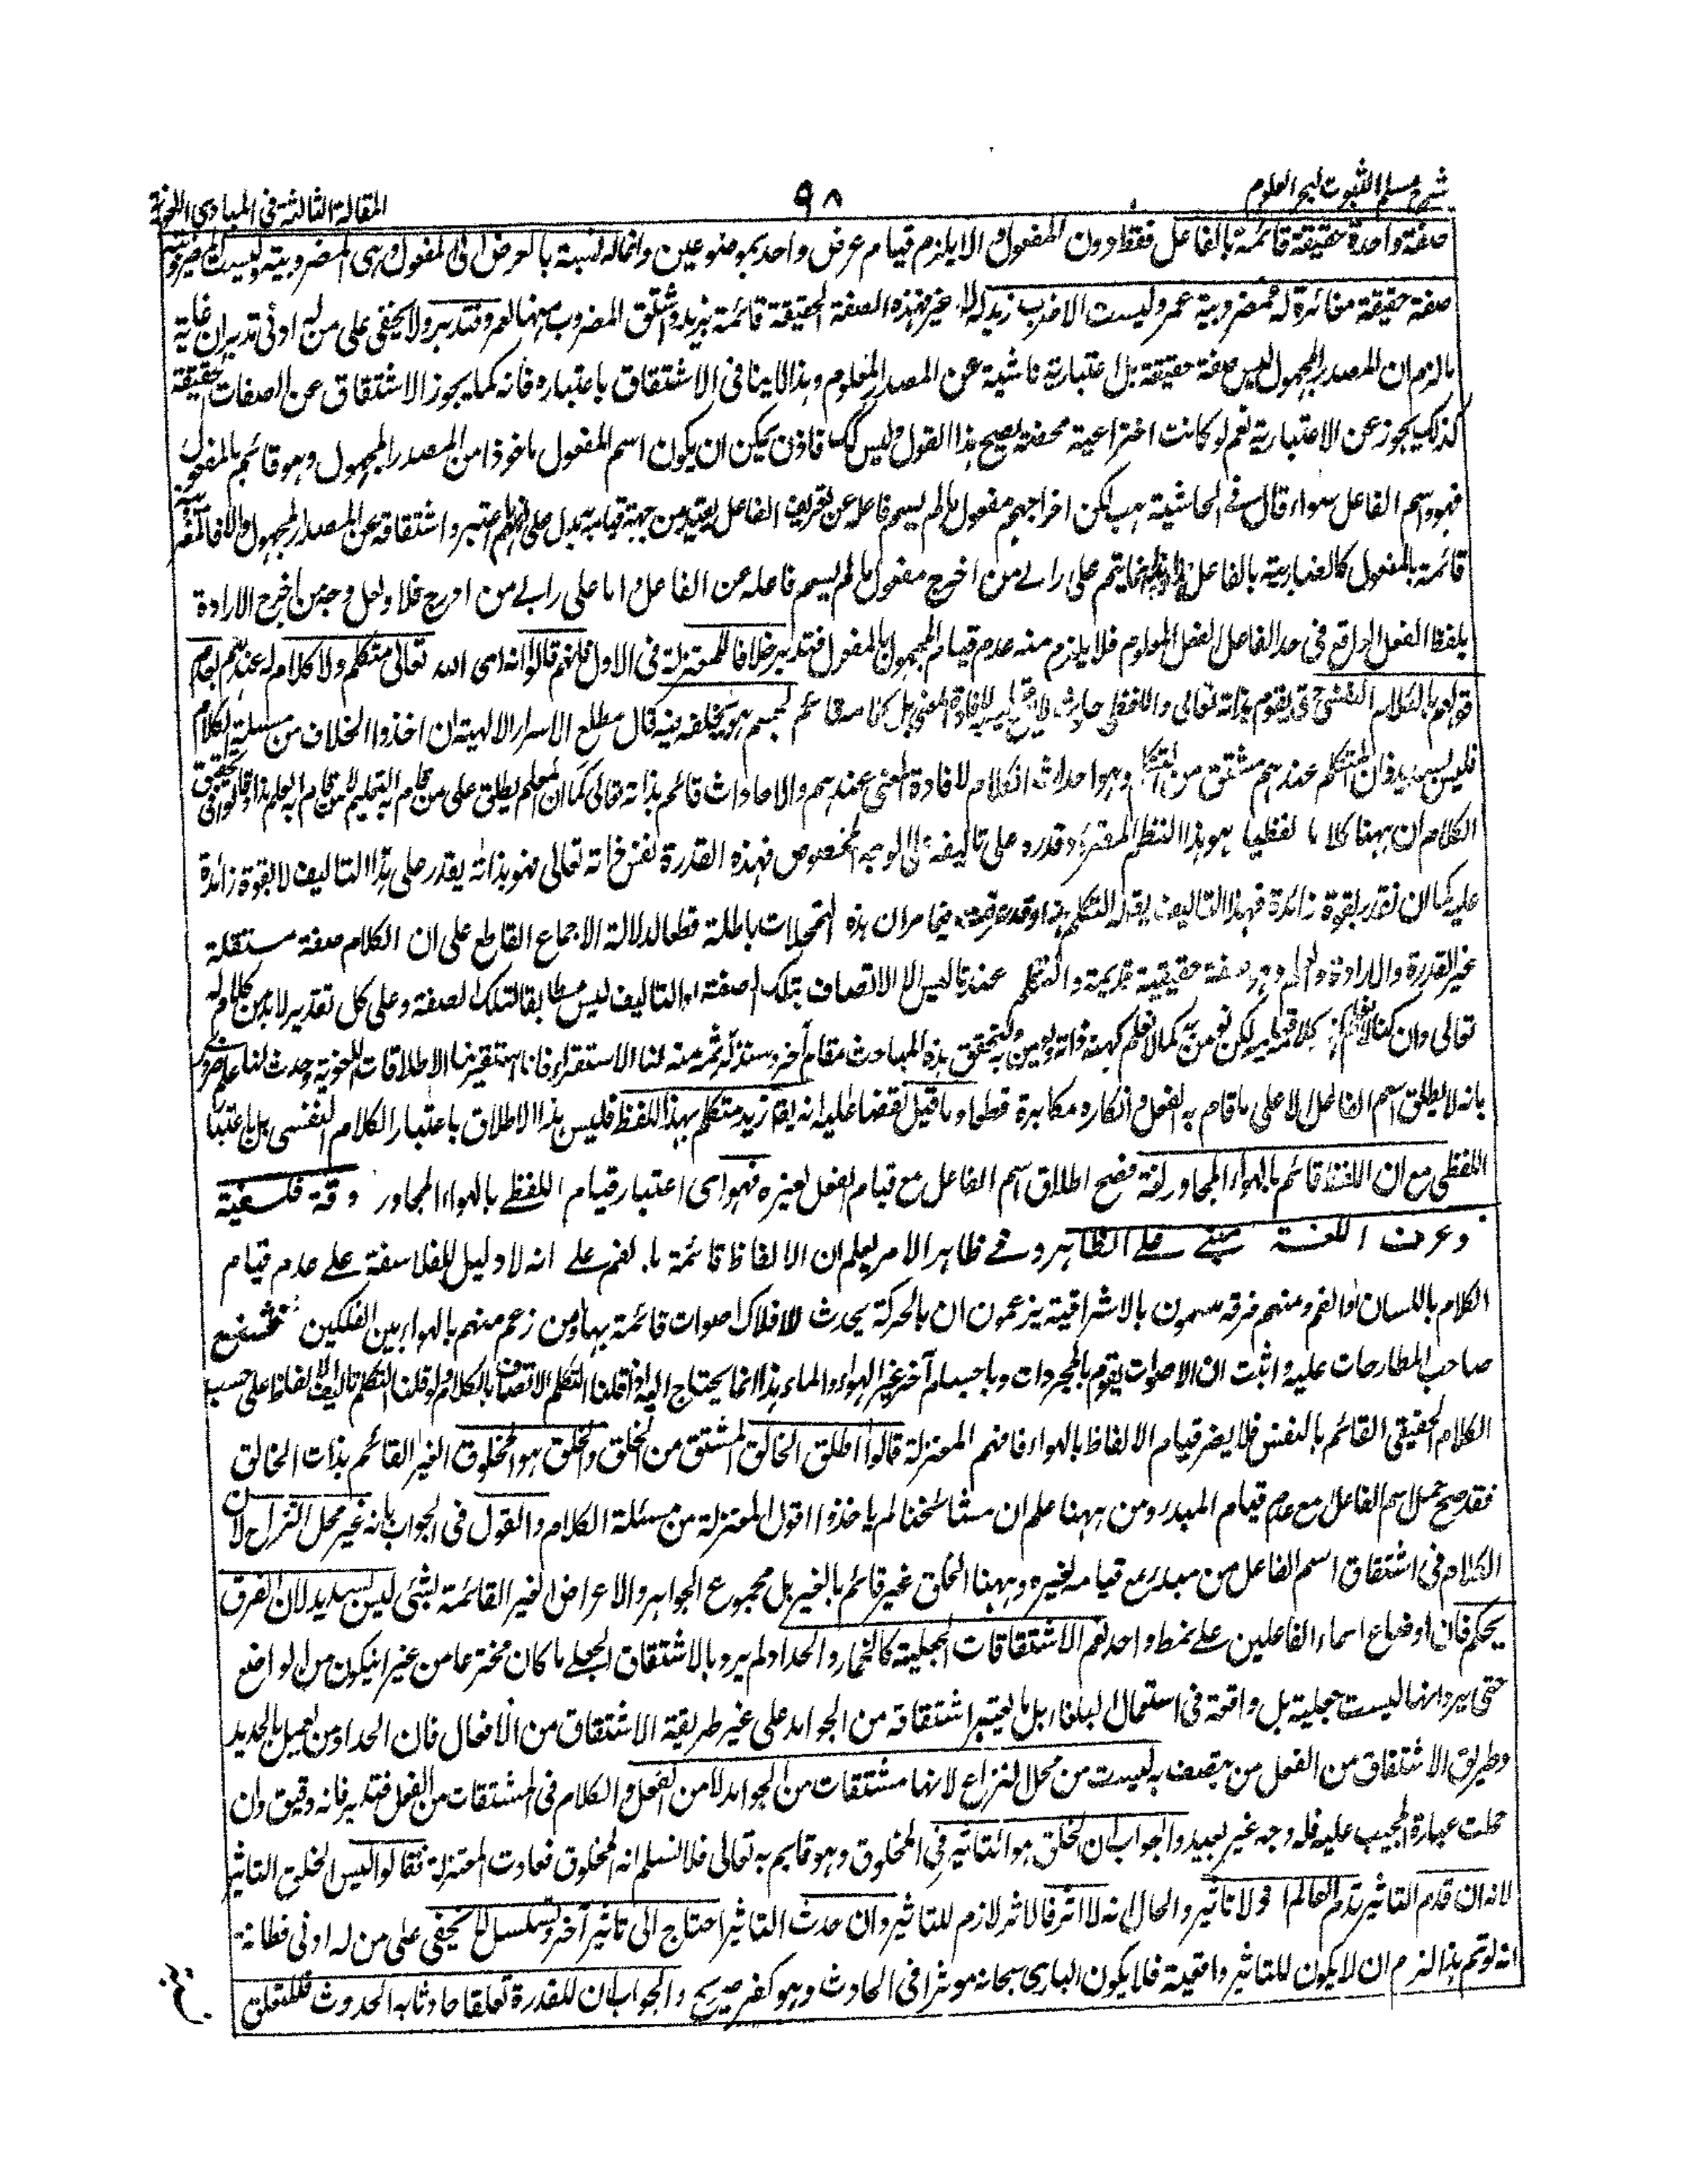 شرح مسلم الثبوت لبحر العلوم
٩٨
المقالة الثالثة فى المبادى اللغوية
صفة واحدة حقيقة قائمة بالفاعل فقط دون المفعول والا يلزم قيام عرض واحد بموضوعين وانما له نسبة بالعرض الى المفعول وهى المضروبية وليست
صفة حقيقة مغائرة له فمضروبية عمرو ليست الا ضرب زيد له لا غير فهذه الصفة الحقيقة قائمة بزيد واشتق المضروب منها لعمرو فتدبر ولا يخفى على من له ادنى تدبر ان غاية
ما لزم ان المصدر المجهول ليس صفة حقيقة بل اعتبارية ناشية عن المصدر المعلوم وهذا لا ينافى الاشتقاق باعتباره فانه كما يجوز الاشتقاق عن الصفات الحقيقة
كذلك يجوز عن الاعتبارية نعم لو كانت اختراعية محضة يصح هذا القول وليس كك فاذن يمكن ان يكون اسم المفعول ماخوذا من المصدر المجهول وهو قائم بالمفعول
فهو واسم الفاعل سواء قال فى الحاشية هب لكن اخراجهم مفعول ما لم يسم فاعله عن تعريف الفاعل بقيد من جهة قيامه به يدل على انهم لم يعتبروا اشتقاقه عن المصدر المجهول والا فالمضروبية
قائمة بالمفعول كالضاربية بالفاعل انما يتم على راى من اخرج مفعول ما لم يسم فاعله عن الفاعل واما على راى من ادرج فلا ولعل وجه من اخرج الارادة
بلفظ الفعل الواقع فى حد الفاعل الفعل المعلوم فلا يلزم منه عدم قيام المجهول بالمفعول فتدبر خلافا للمعتزلة فى الاول فانهم قالوا انه اى الله تعالى متكلم ولا كلام له عندهم لعدم
قولهم بالكلام النفسى حتى يقوم بذاته تعالى واللفظى حادث لا بل كلامه قائم بجسم هو يخلقه فيه قال مطلع الاسرار الالهية ان اخذوا الخلاف من مسئلة الكلام
فليس بسديد فان المتكلم عندهم مشتق من التكلم وهو احداث الكلام لافادة المعنى عندهم والاحداث قائم بذاته تعالى كما ان المعلم يطلق على من قام به التعليم لا من قام به العلم هذا وقالوا فى تحقيق
الكلام ان ههنا كلاما لفظيا هو هذا النظم المقرو وقدرة على تاليفه على الوجه المخصوص فهذه القدرة نفس ذاته تعالى فهو بذاته يقدر على هذا التاليف لا بقوة زائدة
عليه كما ان نقدر بقوة زائدة فهذا التاليف يقال له التكلم هذا وقد عرفت فيما مر ان هذه التمحلات باطلة قطعا لدلالة الاجماع القاطع على ان الكلام صفة مستقلة
غير القدرة والارادة والعلم وهو صفة حقيقية قديمة والتكلم عندنا ليس الا الاتصاف بتلك الصفة او التاليف ليس مطابقا لتلك الصفة وعلى كل تقدير لابد من كلام له
تعالى وان كنا لا نعلم لكن نؤمن به كما لا نعلم كنه ذاته ونؤمن به ولتحقيق هذه المباحث مقام آخر وسنذكر ثمه لنا الاستقراء فانا استقرينا الاطلاقات اللغوية وحدث لنا علم ضرورى
بانه لا يطلق اسم الفاعل الا على ما قام به الفعل وانكاره مكابرة قطعا وما قيل نقضا عليه انه يقال زيد متكلم بهذا اللفظ فليس هذا الاطلاق باعتبار الكلام النفسى بل باعتبار
اللفظى مع ان اللفظ قائم بالهواء المجاور لفمه فصح اطلاق اسم الفاعل مع قيام الفعل لغيره فهو اى اعتبار قيام اللفظ بالهواء المجاور دقة فلسفية
وعرف اللغة مبنى على الظاهر وفى ظاهر الامر يعلم ان الالفاظ قائمة بالفم على انه لا دليل للفلاسفة على عدم قيام
الكلام باللسان او الفم ومنهم فرقه يسمون بالاشراقية يزعمون ان بالحركة يحدث للافلاك اصوات قائمة بها ومن زعم منهم بالهواء بين الفلكين فشنع
صاحب المطارحات عليه واثبت ان الاصوات يقوم بالمجردات وباجسام آخر غير الهواء والماء هذا انما يحتاج اليه اذا قلنا التكلم الاتصاف بالكلام ولو قلنا التكلم تاليف الالفاظ على حسب
الكلام الحقيقى القائم بالنفس فلا يضر قيام الالفاظ بالهواء فافهم المعتزلة قالوا اطلق الخالق المشتق من الخلق والخلق هو المخلوق الغير القائم بذات الخالق
فقد صح حمل اسم الفاعل مع عدم قيام المبدء ومن ههنا علم ان مشائخنا لم ياخذوا قول المعتزلة من مسئلة الكلام والقول فى الجواب بانه غير محل النزاع لان
الكلام فى اشتقاق اسم الفاعل من مبدء مع قيامه لغيره وههنا الخلق غير قائم بالغير بل مجموع الجواهر والاعراض الغير القائمة بشئ ليس بسديد لان الفرق
تحكم فان اوضاع اسماء الفاعلين على نمط واحد نعم الاشتقاقات الجعلية كالخمار والحداد ولم يرد بالاشتقاق الجعلى ما كان مخترعا من غير ان يكون من الواضع
حتى يرد انها ليست جعلية بل واقعة فى استعمال البلغاء بل ما يعتبر اشتقاقه من الجوامد على غير طريقة الاشتقاق من الافعال فان الحداد من يعمل بالحديد
وطريق الاشتقاق من الفعل من يتصف به ليست من محل النزاع لانها مشتقات من الجوامد لا من الفعل والكلام فى المشتقات من الفعل فتدبر فانه دقيق وان
حملت عبارة المجيب عليه فله وجه غير بعيد والجواب ان الخلق هو التاثير فى المخلوق وهو قائم به تعالى فلا نسلم انه المخلوق فعادت المعتزلة فقالوا ليس الخلق التاثير
لانه ان قدم التاثير قدم العالم اذ لا تاثير والحال انه لا اثر فالاثر لازم للتاثير وان حدث التاثير احتاج الى تاثير آخر وتسلسل لا يخفى على من له ادنى فطانة
انه لو تم هذا لزم ان لا يكون للتاثير واقعية فلا يكون البارى سبحانه موثرا فى الحادث وهو كفر صريح والجواب ان للقدرة تعلقا حادثا به الحدوث فللتعلق